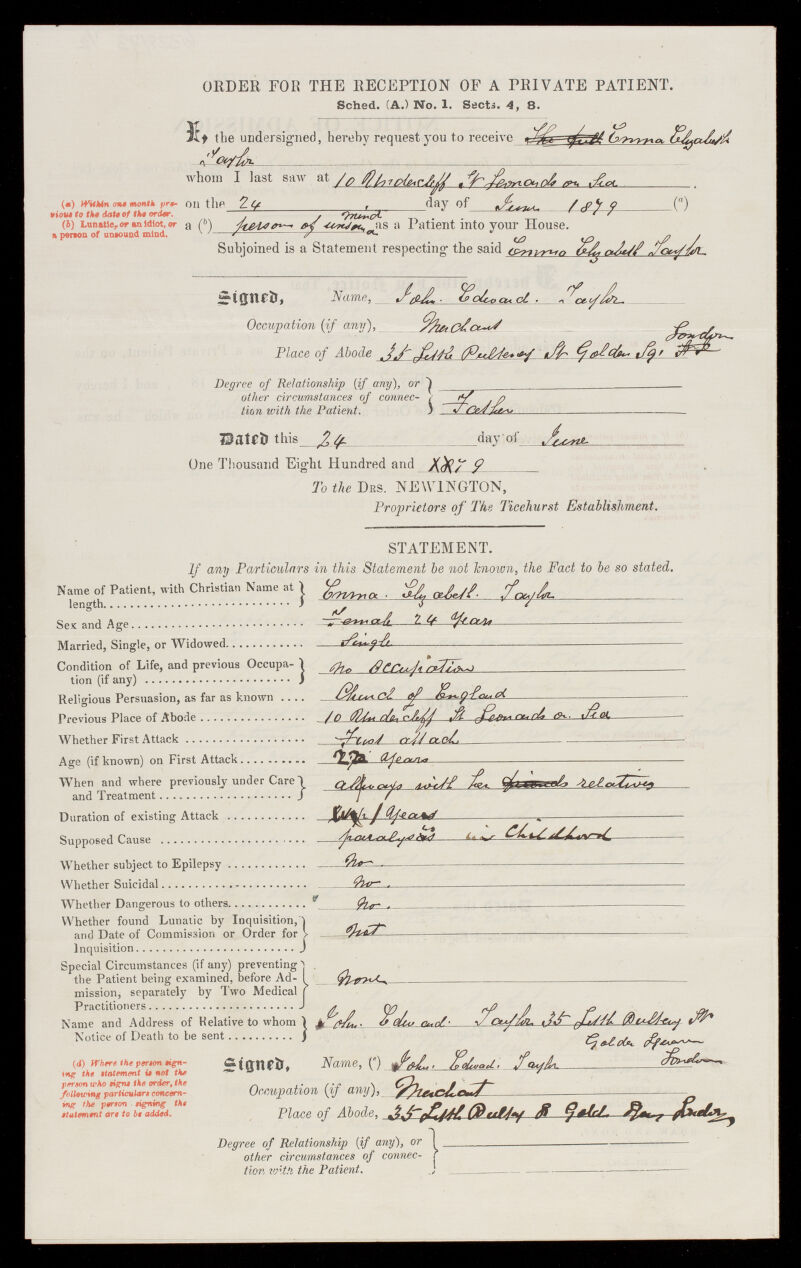 ORDER FOR THE RECEPTION OF A PRIVATE PATIENT.
Sched. (A.) No. 1. Sects. 4, 8.
I, the undersigned, hereby request you to receive Emma Elizabeth
Taylor
whom I last saw at 10 Undercliff St Leonards on Sea
(a) Within one month previous to the date of the order.
on the 24 day of June 1879 (a)
(b) Lunatic, or an idiot, or a person of unsound mind.
a (b) person of unsound mind as a Patient into your House.
Subjoined is a Statement respecting the said Emma Elizabeth Taylor
Signed, Name, John. Edward. Taylor
Occupation (if any), Merchant
Place of Abode 35 Little Pulteney St Golden Sq. London
Degree of Relationship (if any), or
other circumstances of connec-
tion with the Patient. Father
Dated this 24 day of June
One Thousand Eight Hundred and 79
To the DRS. NEWINGTON,
Proprietors of The Ticehurst Establishment.
STATEMENT.
If any Particulars in this Statement be not known, the Fact to be so stated.
Name of Patient, with Christian Name at
length Emma. Elizabeth. Taylor
Sex and Age Female 24 Years
Married, Single, or Widowed Single
Condition of Life, and previous Occupa-
tion (if any) No Occupation
Religious Persuasion, as far as known Church of England
Previous Place of Abode 10 Undercliff St Leonards on Sea
Whether First Attack First attack
Age (if known) on First Attack years
When and where previously under Care
and Treatment always with her relatives
Duration of existing Attack years
Supposed Cause paralysis in Childhood
Whether subject to Epilepsy No.
Whether Suicidal No.
Whether Dangerous to others No.
Whether found Lunatic by Inquisition,
and Date of Commission or Order for
Inquisition Not
Special Circumstances (if any) preventing
the Patient being examined, before Ad-
mission, separately by Two Medical
Practitioners None
Name and Address of Relative to whom
Notice of Death to be sent John. Edward. Taylor 35 Little Pulteney St
Golden Square
London
(d) Where the person sign-
ing the statement is not the
person who signs the order, the
following particulars concern-
ing the person signing the
statement are to be added.
Signed, Name, (c) John. Edward. Taylor
Occupation (if any), Merchant
Place of Abode, 35 Little Pultey St Golden London
Degree of Relationship (if any), or
other circumstances of connec-
tion with the Patient.